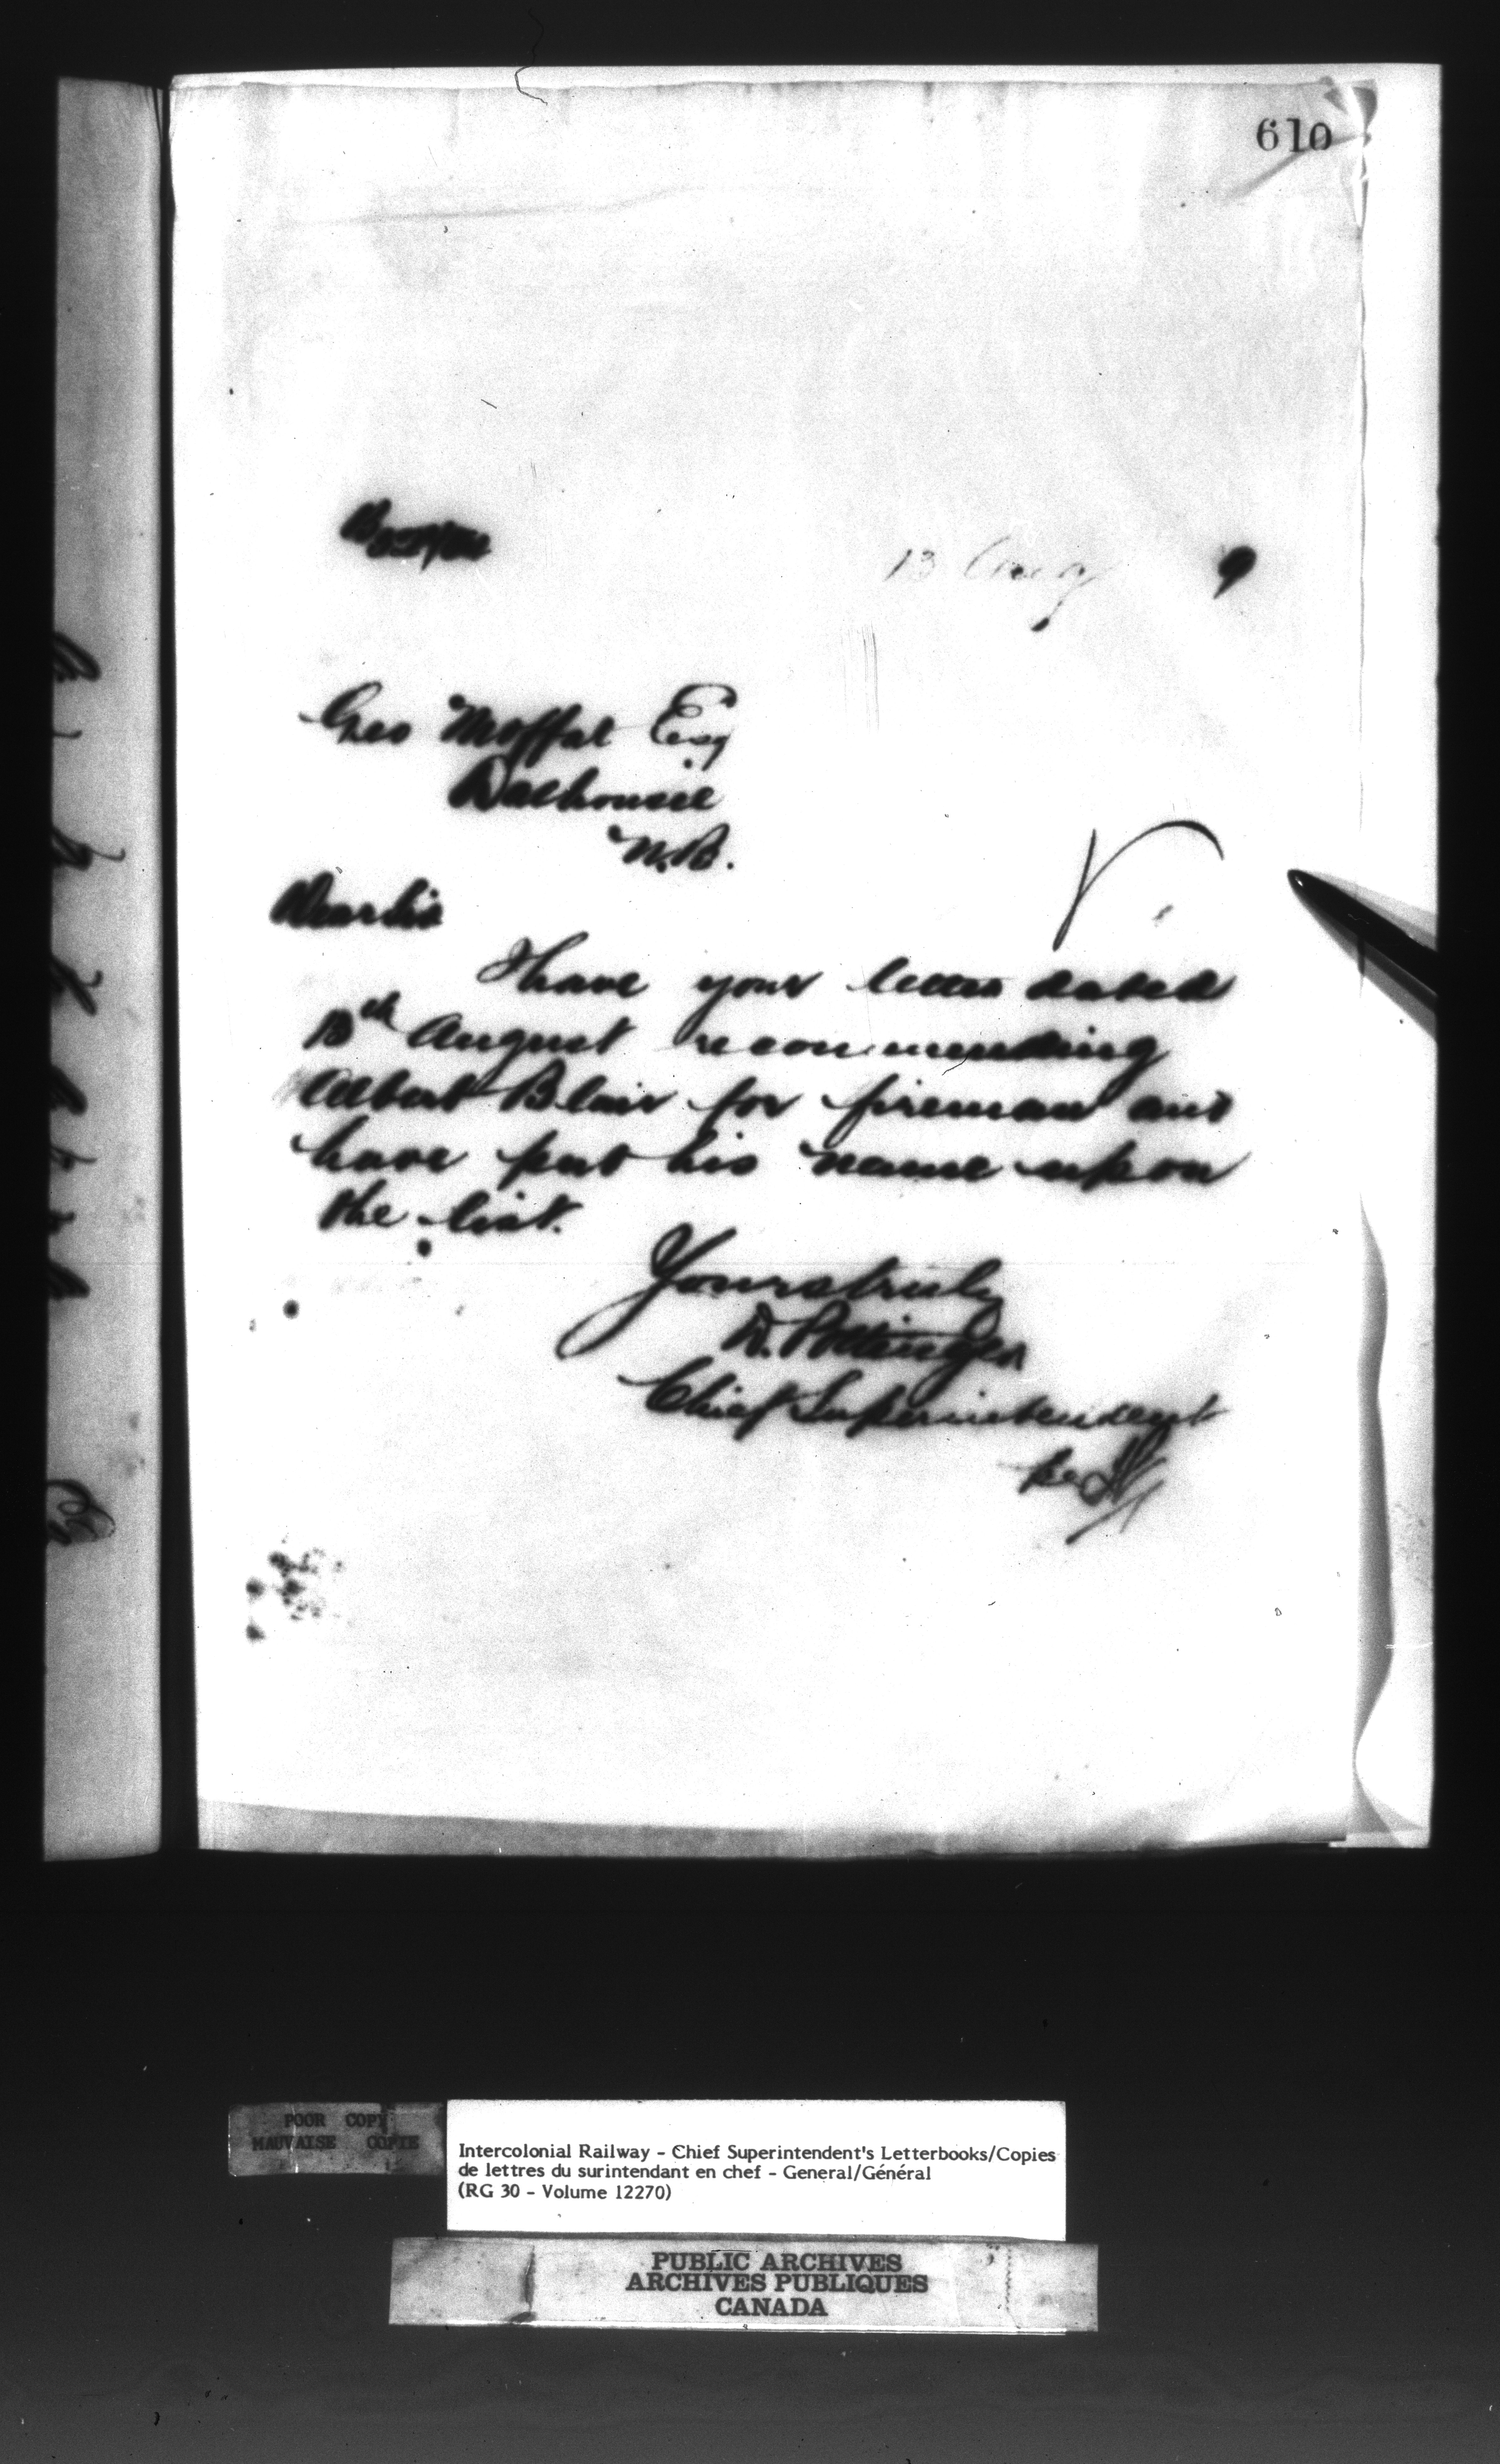 610
13 Aug 9
Geo Moffat Esq
Dalhousie
N.B.
Dear Sir
I have your letter dated
13th August recommending
Albert Blair for fireman and
have put his name upon
the list.
Yours truly
D. Pottinger
Chief Superintendent
per
POOR COPY
MAUVAISE COPIE
Intercolonial Railway - Chief Superintendent's Letterbooks/Copies
de lettres du surintendant en chef - General/Général
(RG 30 - Volume 12270)
PUBLIC ARCHIVES
ARCHIVES PUBLIQUES
CANADA